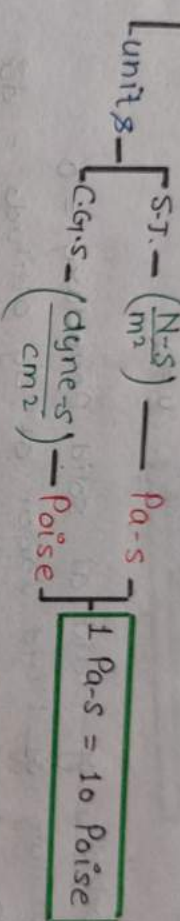 units - S.I. - (N-s/m²) - Pa-s
C.G.S - (dyne-s/cm²) - Poise
1 Pa-s = 10 Poise